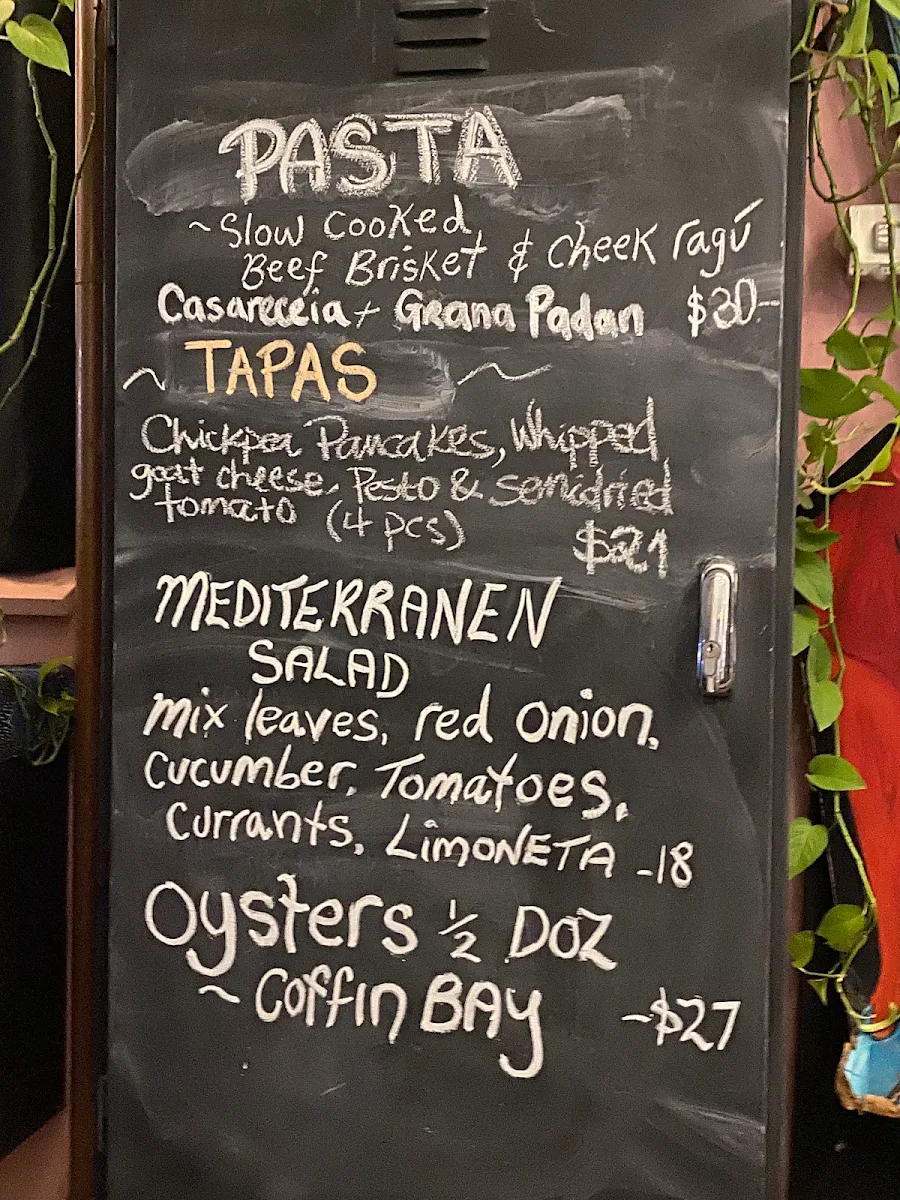 PASTA
~Slow cooked
Beef Brisket & cheek ragú
Casareccia + Grana Padan $30-
~ TAPAS ~
Chickpea Pancakes, Whipped
goat cheese, Pesto & semidried
tomato (4 pcs) $21
MEDITERRANEN
SALAD
mix leaves, red onion,
cucumber, Tomatoes,
currants, LiMONETA -18
Oysters ½ DOZ
~ Coffin BAY ~$27